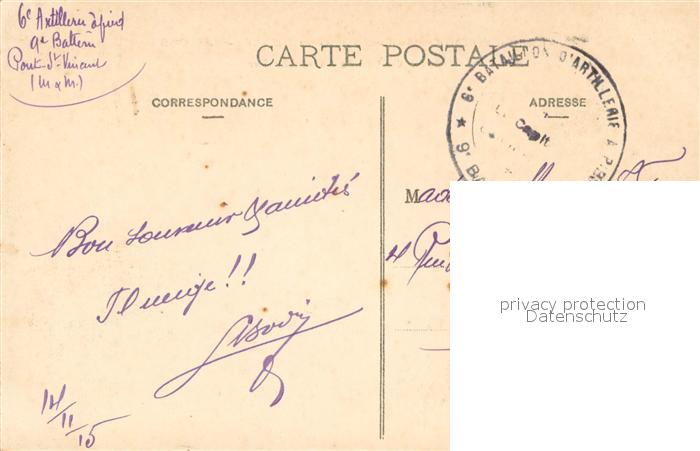 6e Artillerie à pied
9e Batterie
Pont St Vincent
(M & M.)
CARTE POSTALE
CORRESPONDANCE
ADRESSE
★ 6e BATAILLON D'ARTILLERIE A PIED
9e BA
Le Capit
Bon souvenir & amitiés
Il neige!!
14/11/15
privacy protection
Datenschutz